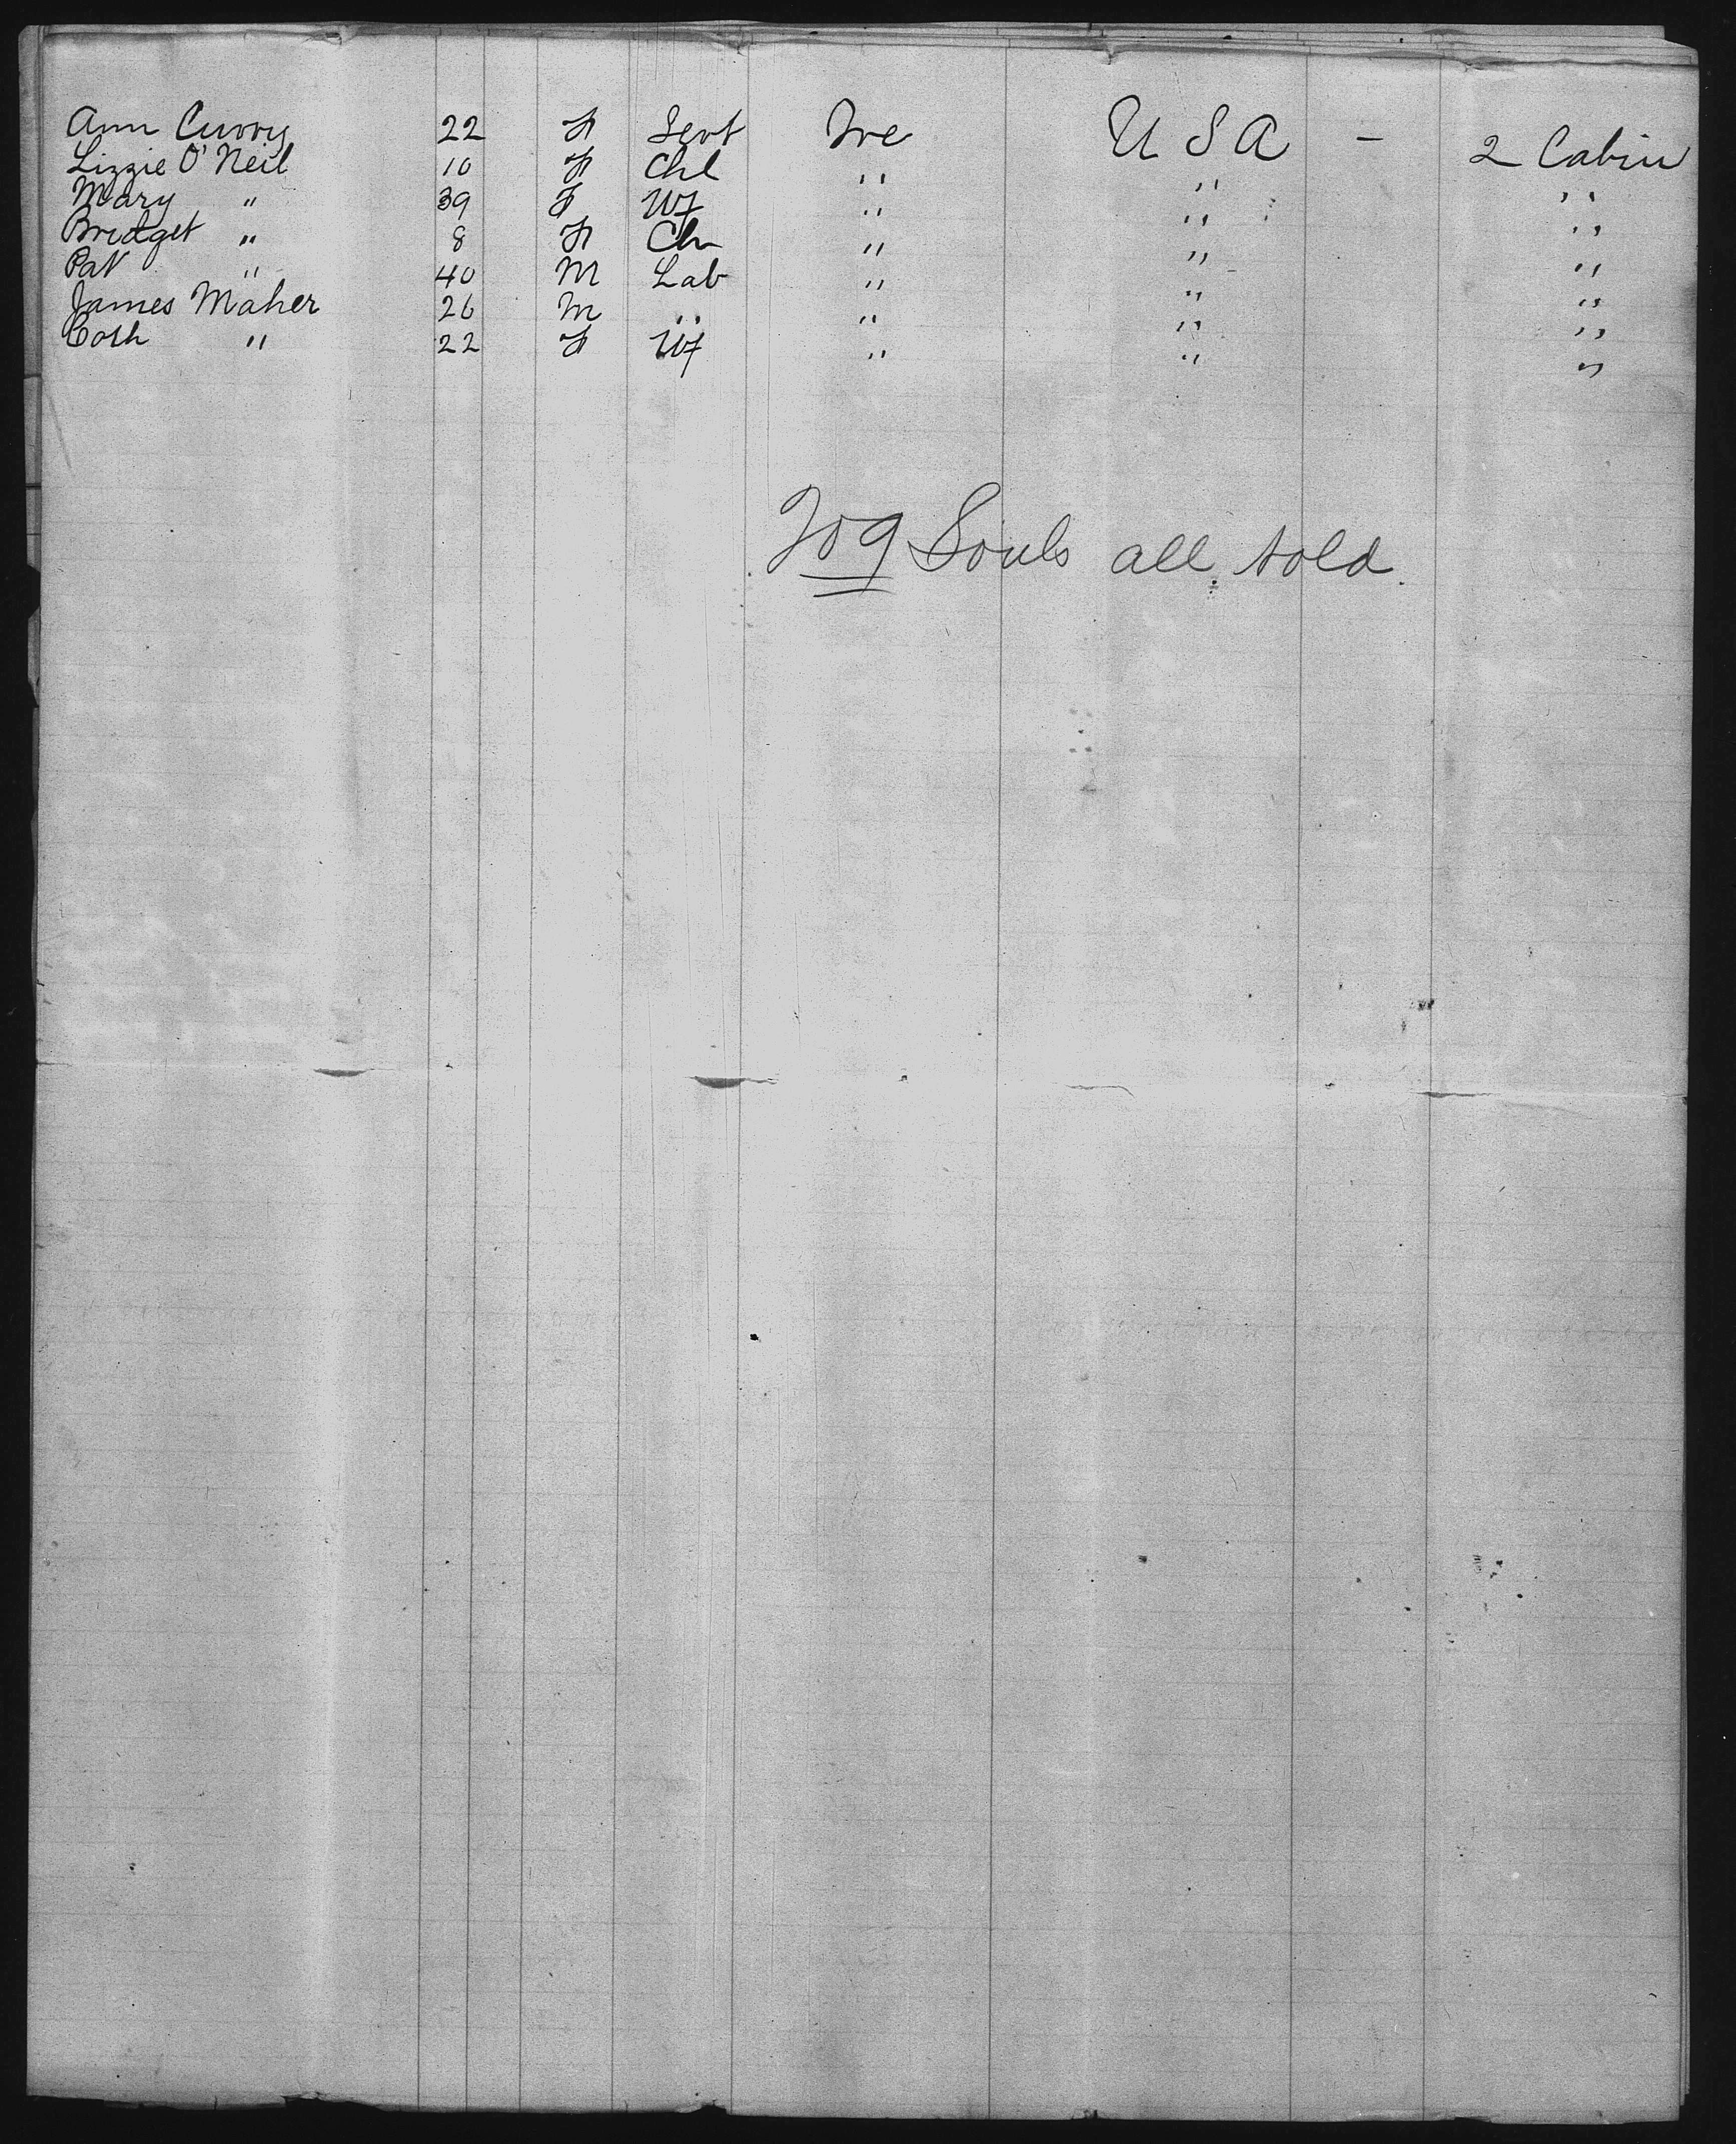 Ann Curry 22 F Sert Ire U S A - 2 Cabin
Lizzie O'Neil 10 F Chl " " "
Mary " 39 F Wf " " "
Bridget " 8 F Ch " " "
Pat " 40 M Lab " " "
James Maher 26 M " " " "
Cath " 22 F Wf " " "
709 Souls all told.